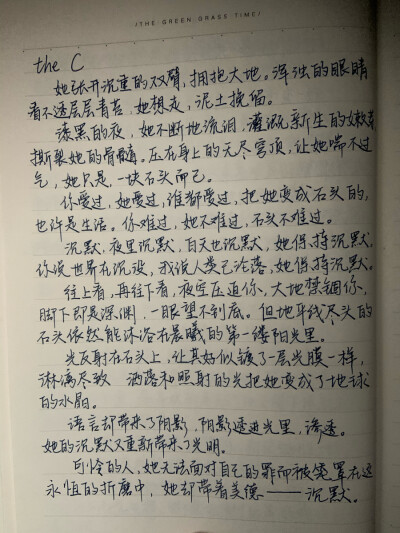 /THE GREEN GRASS TIME/
the C
她张开沉重的双臂,拥抱大地。浑浊的眼睛
看不透层层青苔,她想走,泥土挽留。
漆黑的夜,她不断地流泪,灌溉新生的嫩芽
撕裂她的骨髓。压在身上的无尽穹顶,让她喘不过
气,她只是一块石头而已。
你爱过,她爱过,谁都爱过,把她变成石头的,
也许是生活。你难过,她不难过,石头不难过。
沉默,夜里沉默,白天也沉默,她保持沉默,
你说世界在沉没,我说人类已沦落,她保持沉默。
往上看,再往下看,夜空压迫你,大地禁锢你,
脚下即是深渊,一眼望不到底。但地平线尽头的
石头依然能沐浴在晨曦的第一缕阳光里。
光反射在石头上,让其好似镀了一层光膜一样,
淋漓尽致 洒落和照射的光把她变成了地球
的水晶。
语言却带来了阴影,阴影透进光里,渗透。
她的沉默又重新带来了光明。
可怜的人,她无法面对自己的罪而被笼罩在这
永恒的折磨中,她却带着美德——沉默。